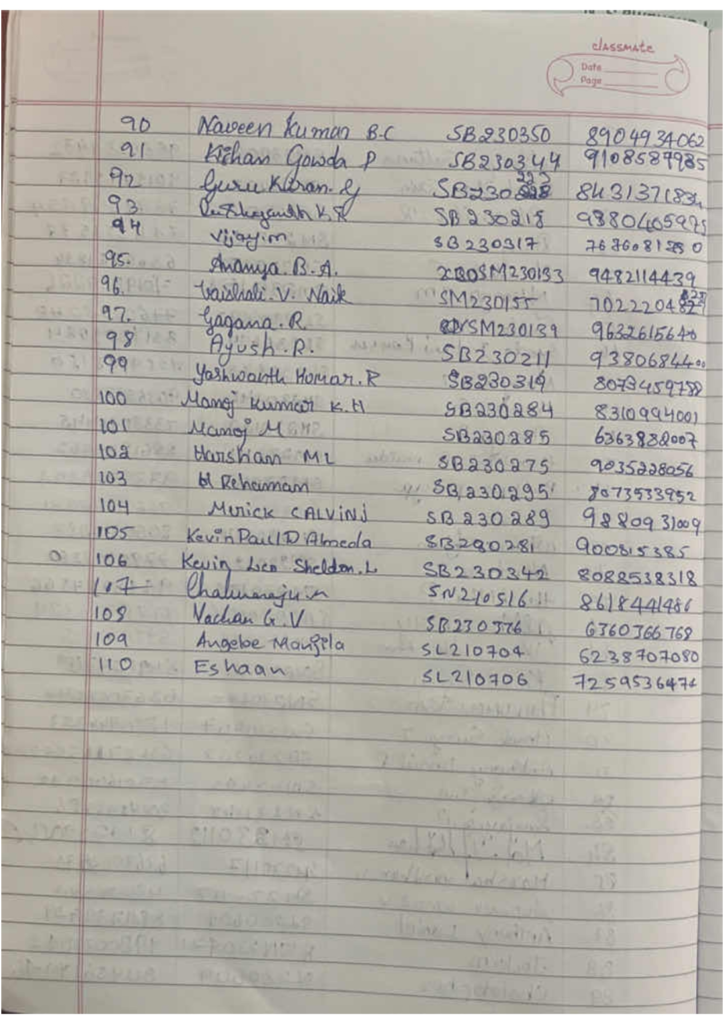 classmate
Date
Page
90 Naveen Kumar B.C SB230350 8904934062
91 Kishan Gowda P SB230344 9108587985
92 Guru Kiran. G SB230 223
93 K.R SB230218 9380405975
94 Vijay.m SB230317
95. Ananya. B. A. SM230133 9482114439
96. Vaishali. V. Naik SM230155
97. Gagana. R SM230139 9632615640
98 Ayush. R. SB230211 9380684400
99 Yashwanth Kumar. R SB230319
100 Manoj Kumar K.H SB230284 8310994001
101 Manoj M SB230285 6363882007
102 Harsham ML SB230275 9035228056
103 H Rehaman SB230295 8073533952
104 Menick CALVINJ SB230289 9880931009
105 Kevin Paul D Almeda SB230281 900815385
106 Kevin Leo Sheldon. L SB230342 8088538318
107 SN210516 8618441486
108 Vachan G. V SB230376 6360366768
109 Angebe Manjila SL210704 6238707080
110 Eshaan SL210706 7259536474